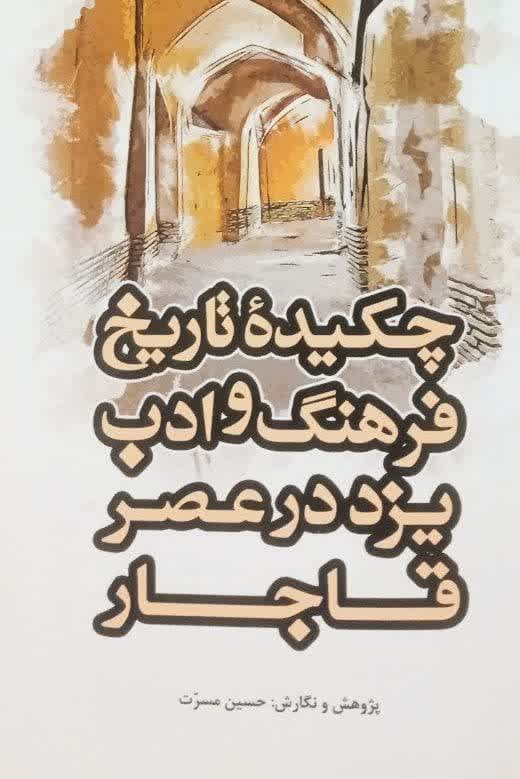 چکیدهٔ تاریخ
فرهنگ و ادب
یزد در عصر
قاجار
پژوهش و نگارش: حسین مسرّت